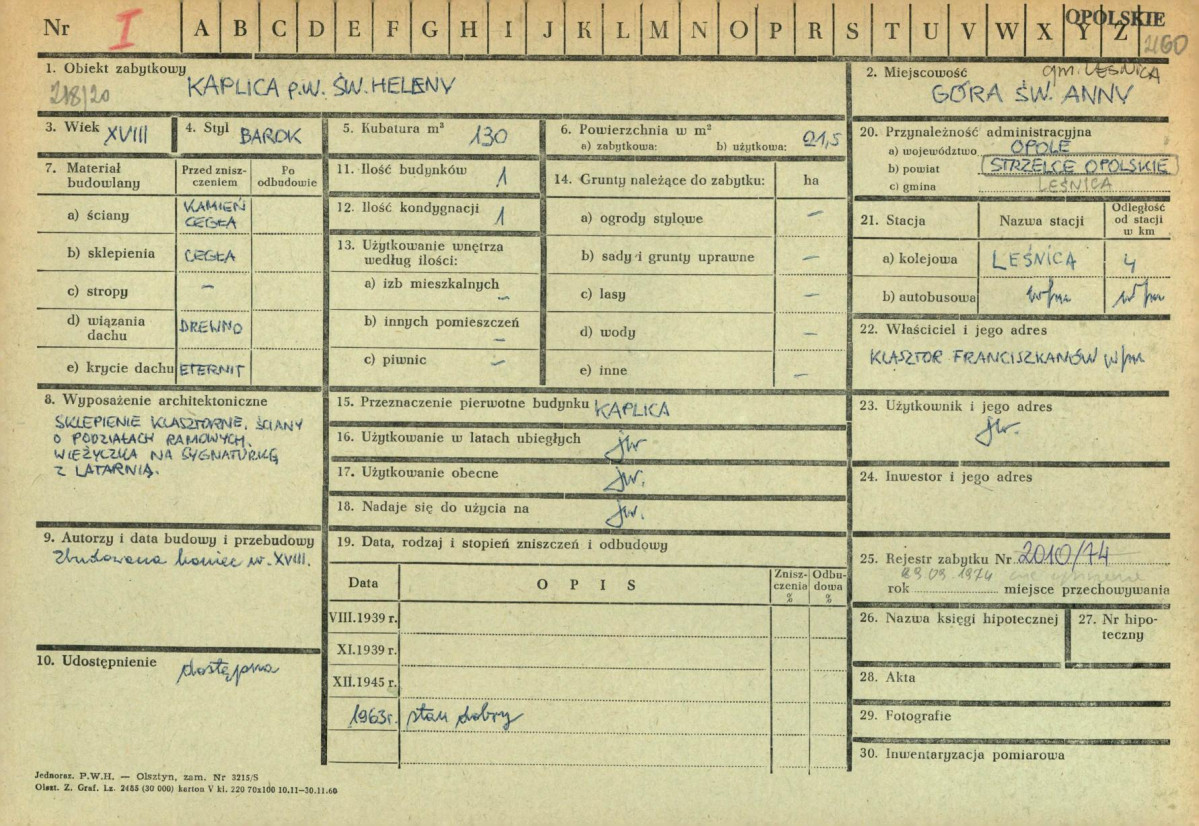 Nr I A B C D E F G H I J K L M N O P R S T U V W X Y Z OPOLSKIE
1. Obiekt zabytkowy
218/20 KAPLICA P.W. ŚW. HELENY
2. Miejscowość gm. LEŚNICA
GÓRA ŚW. ANNY
3. Wiek XVIII
4. Styl BAROK
5. Kubatura m³ 130
6. Powierzchnia w m²
a) zabytkowa: b) użytkowa: 21,5
7. Materiał budowlany
Przed zniszczeniem
Po odbudowie
a) ściany KAMIEŃ CEGŁA
b) sklepienia CEGŁA
c) stropy –
d) wiązania dachu DREWNO
e) krycie dachu ETERNIT
8. Wyposażenie architektoniczne
SKLEPIENIE KLASZTORNE. ŚCIANY
O PODZIAŁACH RAMOWYCH.
WIEŻYCZKA NA SYGNATURKĘ
Z LATARNIĄ.
9. Autorzy i data budowy i przebudowy
Zbudowana koniec w. XVIII.
10. Udostępnienie dostępna
11. Ilość budynków 1
12. Ilość kondygnacji 1
13. Użytkowanie wnętrza
według ilości:
a) izb mieszkalnych –
b) innych pomieszczeń –
c) piwnic –
14. Grunty należące do zabytku: ha
a) ogrody stylowe –
b) sady i grunty uprawne –
c) lasy –
d) wody –
e) inne –
15. Przeznaczenie pierwotne budynku KAPLICA
16. Użytkowanie w latach ubiegłych jw
17. Użytkowanie obecne jw.
18. Nadaje się do użycia na jw.
19. Data, rodzaj i stopień zniszczeń i odbudowy
Data OPIS Zniszczenia % Odbudowa %
VIII.1939 r.
XI.1939 r.
XII.1945 r.
1963r. stan dobry
20. Przynależność administracyjna
a) województwo OPOLE
b) powiat STRZELCE OPOLSKIE
c) gmina LEŚNICA
21. Stacja Nazwa stacji Odległość od stacji w km
a) kolejowa LEŚNICA 4
b) autobusowa w/m w/m
22. Właściciel i jego adres
KLASZTOR FRANCISZKANÓW w/m
23. Użytkownik i jego adres
jw.
24. Inwestor i jego adres
25. Rejestr zabytku Nr 2010/74
rok miejsce przechowywania
26. Nazwa księgi hipotecznej
27. Nr hipoteczny
28. Akta
29. Fotografie
30. Inwentaryzacja pomiarowa
Jednoraz. P.W.H. — Olsztyn, zam. Nr 3215/S
Olszt. Z. Graf. Lz. 2455 (30 000) karton V kl. 220 70x100 10.11—30.11.60